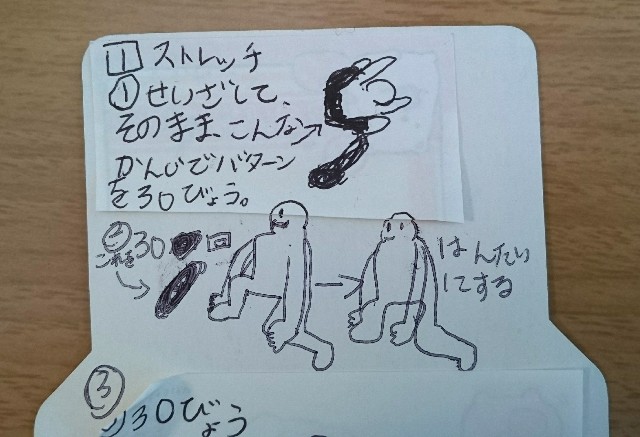 1 ストレッチ
① せいざして、
そのまま、こんな
かんじでバターン
を30びょう。
② 30 回
これを
はんたい
にする
③
30びょう